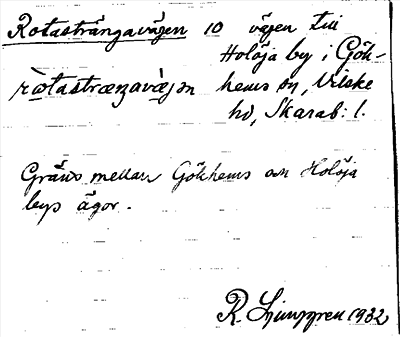 Rotasträngavägen 10 vägen till
Holöja by i Gök-
rɷtastræŋavæjən hems sn, Vilske
hd, Skarab: l.
Gräns mellan Gökhems och Holöja
bys ägor.
R. Ljunggren 1932